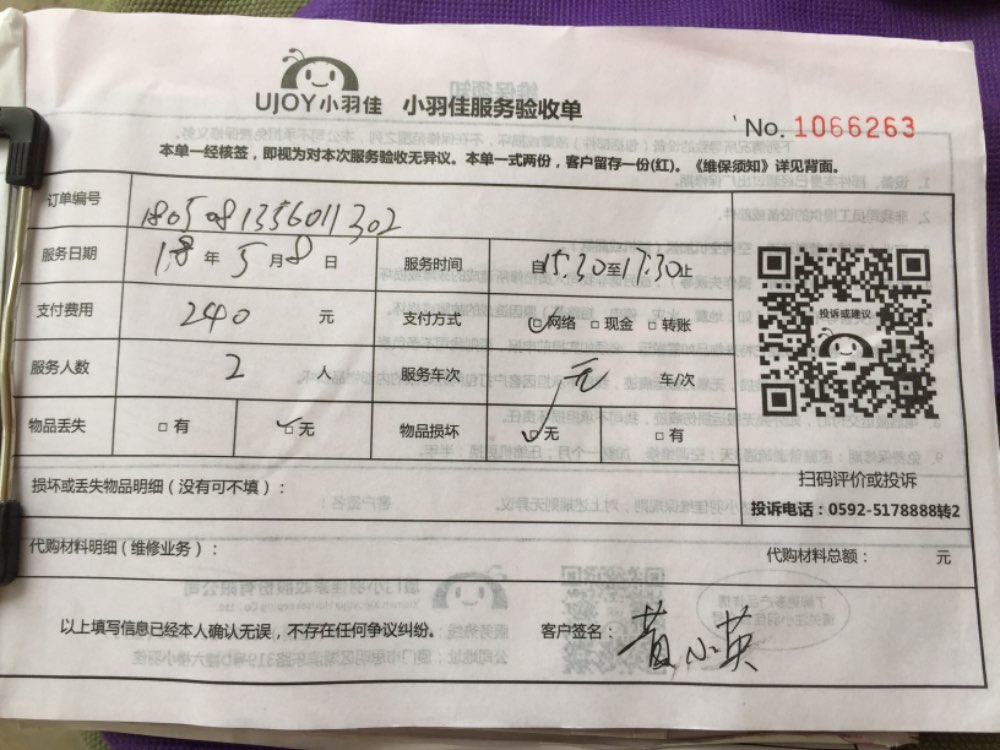 UJOY小羽佳 小羽佳服务验收单
No. 1066263
本单一经核签，即视为对本次服务验收无异议。本单一式两份，客户留存一份(红)。《维保须知》详见背面。
订单编号 180508135601 1302
服务日期 18年5月8日 服务时间 自15:30至17:30止
支付费用 240 元 支付方式 □网络 □现金 □转账
投诉或建议
服务人数 2 人 服务车次 无 车/次
物品丢失 □有 □无 物品损坏 □无 □有
扫码评价或投诉
损坏或丢失物品明细（没有可不填）：
投诉电话：0592-5178888转2
代购材料明细（维修业务）： 代购材料总额： 元
以上填写信息已经本人确认无误，不存在任何争议纠纷。 客户签名：黄小英